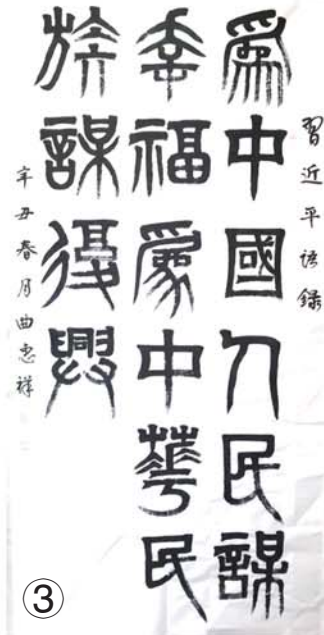 習近平語録
爲中國人民謀
幸福爲中華民
族謀復興
辛丑春月曲忠祥
③